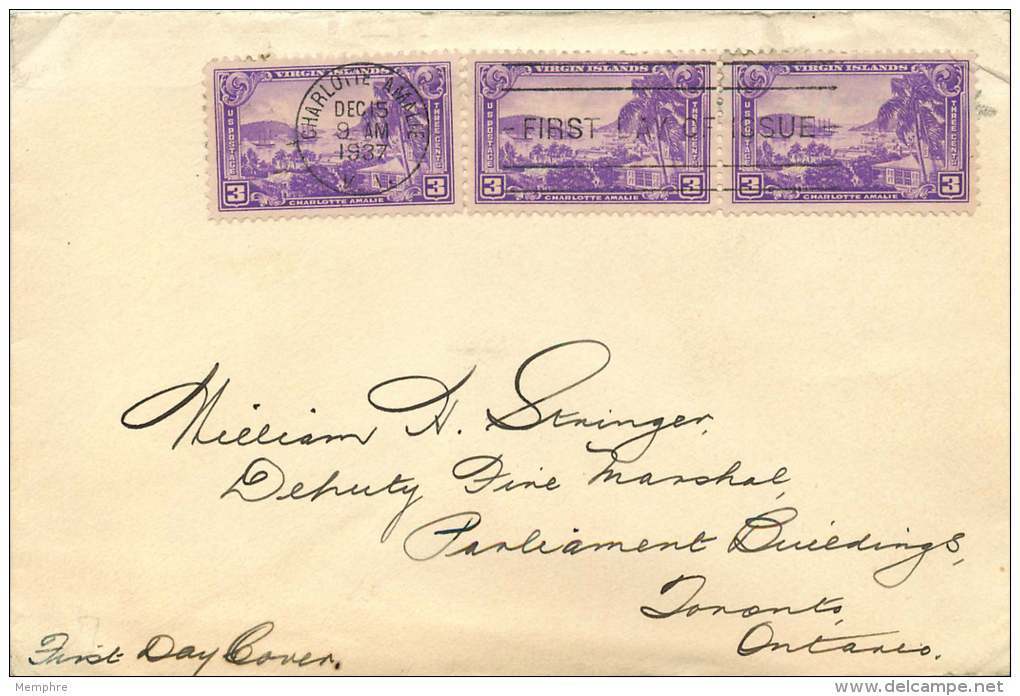 VIRGIN ISLANDS VIRGIN ISLANDS VIRGIN ISLANDS
U S POSTAGE THREE CENTS U S POSTAGE THREE CENTS U S POSTAGE THREE CENTS
CHARLOTTE AMALIE
DEC 15
9 AM
1937
V. I.
FIRST DAY OF ISSUE
3 3 3 3 3 3
CHARLOTTE AMALIE CHARLOTTE AMALIE CHARLOTTE AMALIE
William H. Stringer,
Deputy Fire Marshal,
Parliament Buildings,
Toronto,
Ontario.
First Day Cover.
Memphre
delcampe.net